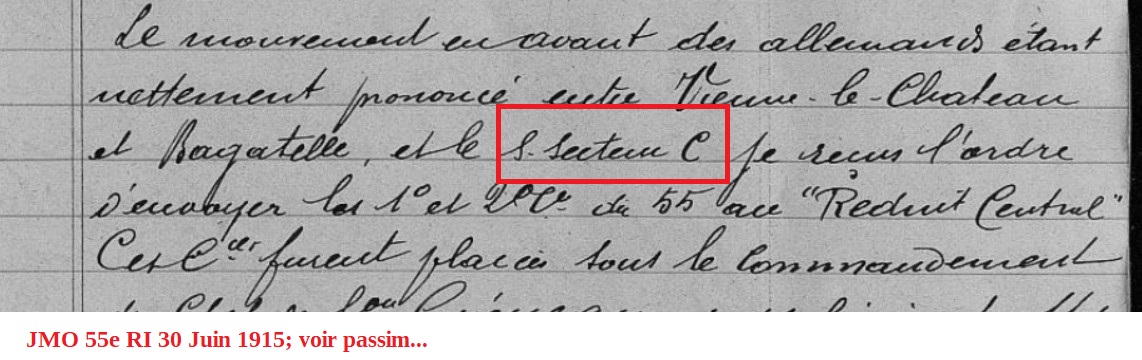 Le mouvement en avant des allemands étant
nettement prononcé entre Vienne-le-Chateau
et Bagatelle, et le S. Secteur C je reçus l'ordre
d'envoyer les 1e et 2e Cie du 55 au "Réduit Central"
Ces Cies furent placées sous le commandement
JMO 55e RI 30 Juin 1915; voir passim...